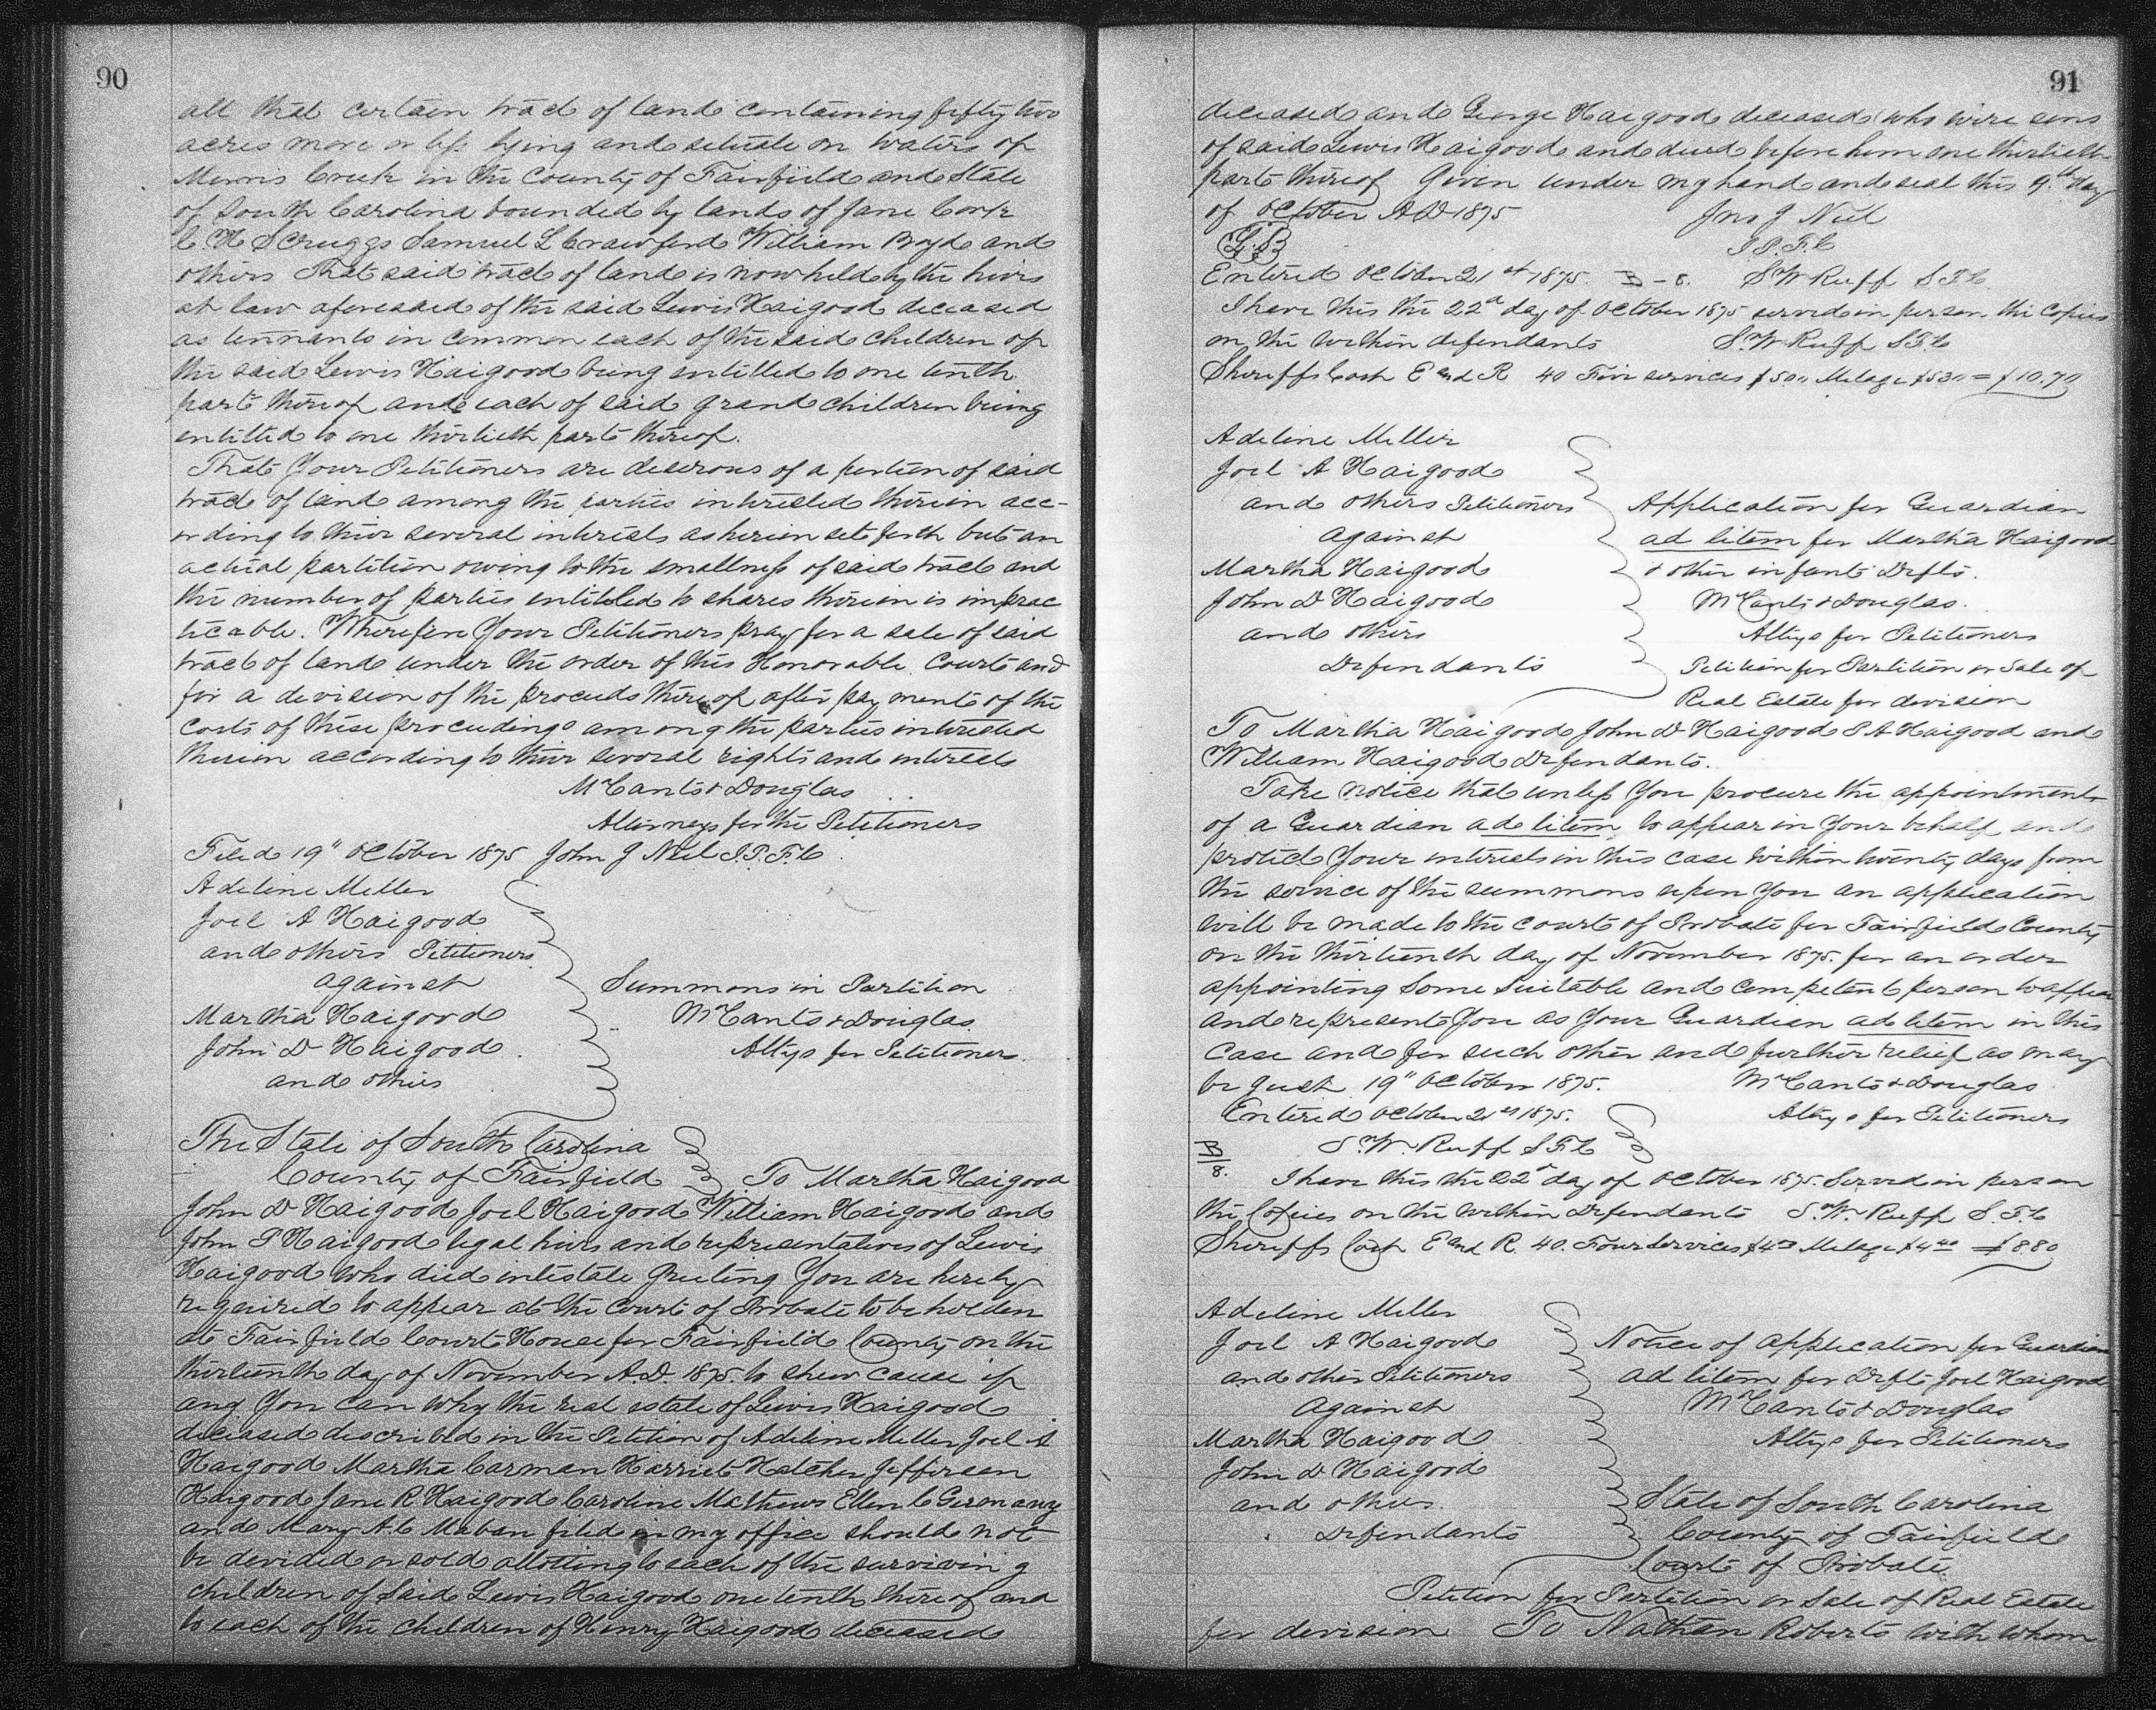 90
all that certain tract of land containing fifty two
acres more or less lying and situate on waters of
Morris Creek in the County of Fairfield and State
of South Carolina bounded by lands of Jane Cork
C H Scruggs Samuel L Crawford William Boyd and
others That said tract of land is now held by the heirs
at law aforesaid of the said Lewis Haigood deceased
as tennants in common each of the said children of
the said Lewis Haigood being entitled to one tenth
part thereof and each of said grand children being
entitled to one thirtieth part thereof.
That Your Petitioners are desirous of a partion of said
tract of land among the parties interested therein acc-
ording to their several interests as herein set forth but an
actual partition owing to the smallness of said tract and
the number of parties entitled to shares therein is imprac
ticable. Wherefore Your Petitioners pray for a sale of said
tract of land under the order of this Honorable Court and
for a division of the proceeds thereof after payment of the
costs of these proceedings among the parties interested
therein according to their several rights and interests
McCants & Douglas
Attorneys for the Petitioners
Filed 19" October 1875 John J Neil J.P.F.C.
Adeline Miller
Joel A Haigood
and others Petitioners
against
Martha Haigood
John D Haigood
and others
Summons in Partition
McCants & Douglas
Attys for Petitioners
The State of South Carolina
County of Fairfield To Martha Haigood
John D Haigood Joel Haigood William Haigood and
John P Haigood legal heirs and representatives of Lewis
Haigood who died intestate Greeting You are hereby
required to appear at the Court of Probate to be holden
at Fairfield Court House for Fairfield County on the
thirteenth day of November A.D. 1875 to shew cause if
any You can why the real estate of Lewis Haigood
deceased described in the Petition of Adeline Miller Joel A
Haigood Martha Carman Harriet Hatcher Jefferson
Haigood Jane R Haigood Caroline Mathews Ellen C Germany
and Mary A C Maban filed in my office should not
be devided or sold allotting to each of the surviving
children of said Lewis Haigood one tenth thereof and
to each of the children of Henry Haigood deceased
91
deceased and George Haigood deceased who were sons
of said Lewis Haigood and died before him one thirtieth
part thereof Given under my hand and seal this 9th day
of October AD 1875 Jno J Neil
L.S. J.P.F.C
Entered October 21st 1875. B-8. S W Ruff S.F.C.
I have this the 22d day of October 1875 served in person the copies
on the within defendants S. W Ruff S.F.C
Sheriffs Cost E and R 40 Five services $500 Milage $530 = $10.70
Adeline Miller
Joel A Haigood
and others Petitioners
against
Martha Haigood
John D Haigood
and others
Defendants
Application for Guardian
ad litem for Martha Haigood
& other infant Defts.
McCants & Douglas.
Attys for Petitioners
Petition for Partition or Sale of
Real Estate for division
To Martha Haigood John D Haigood S A Haigood and
William Haigood Defendants.
Take notice that unless You procure the appointment
of a Guardian ad litem to appear in Your behalf and
protect Your interest in this case within twenty days from
the service of the summons upon You an application
will be made to the court of Probate for Fairfield County
on the thirteenth day of November 1875. for an order
appointing some suitable and competent person to appear
and represent You as Your Guardian ad litem in this
case and for such other and further relief as may
be just 19" October 1875. McCants & Douglas
Entered October 21st 1875. Attys for Petitioners
B/8. S. W. Ruff S.F.C
I have this the 22d day of October 1875. Served in person
the Copies on the within Defendants S. W. Ruff S.F.C
Sheriffs Cost E and R. 40. Four Services $400 Milage $440 = $8.80
Adeline Miller
Joel A Haigood
and other Petitioners
Against
Martha Haigood
John D Haigood
and others
Defendants
Notice of application for Guardian
ad litem for Deft Joel Haigood
McCants & Douglas
Attys for Petitioners
State of South Carolina
County of Fairfield
Court of Probate.
Petition for Partition or Sale of Real Estate
for division To Nathan Roberts with whom